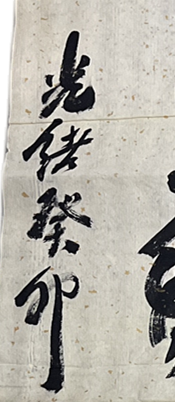 光緒癸卯